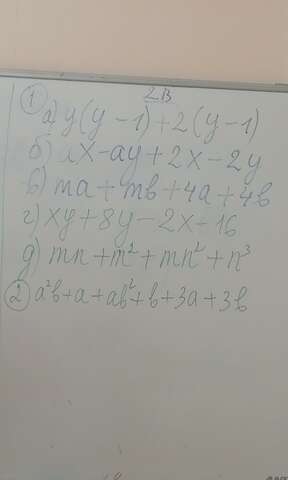 2В
① а) y(y-1)+2(y-1)
б) ax-ay+2x-2y
в) ma+mb+4a+4b
г) xy+8y-2x-16
д) mn+m²+mn²+n³
② a²b+a+ab²+b+3a+3b